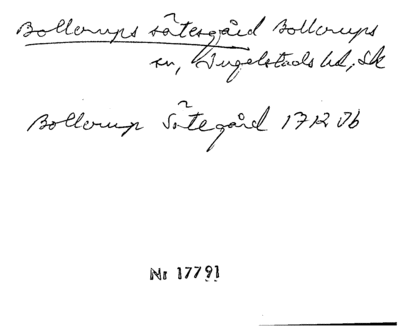 Bollerups sätesgård Bollerups
sn, Ingelstads hd, Sk
Bollerup Sätegård 1712 Jb
Nr 17791